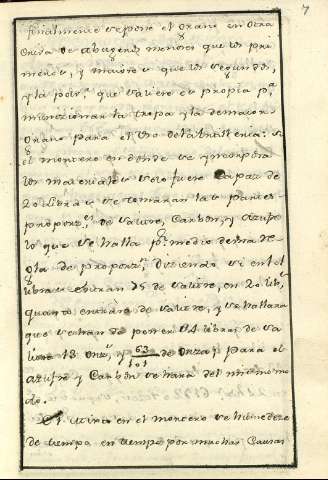 7
finalmente se pone el Grano en otra
Criva de abugeros menores que los pri
meros, y maiores que los segundos,
y la polv.ª que saliere es propia p.ª
municionar la tropa y la demas
Grano para el Uso de la Artilleria: si
el mortero en donde se
los materiales solo fuere Capaz de
20 libras se tomaran las partes
proporz.s de Salitre, Carbon, y Azufre
lo que se halla p.r medio de una re-
gla de proporz.n Diziendo si en el
libras entran 75 de salitre, en 20 lib.s
quanto entrara de salitre, y se hallara
que se han de poner 14 libras de sa
litre 13 Onz.s y 63/101 de Onza, y para el
azufre y Carbon se hara del mismo mo
do.
El mixto en el mortero se humedeze
de tiempo en tiempo por muchas Causas